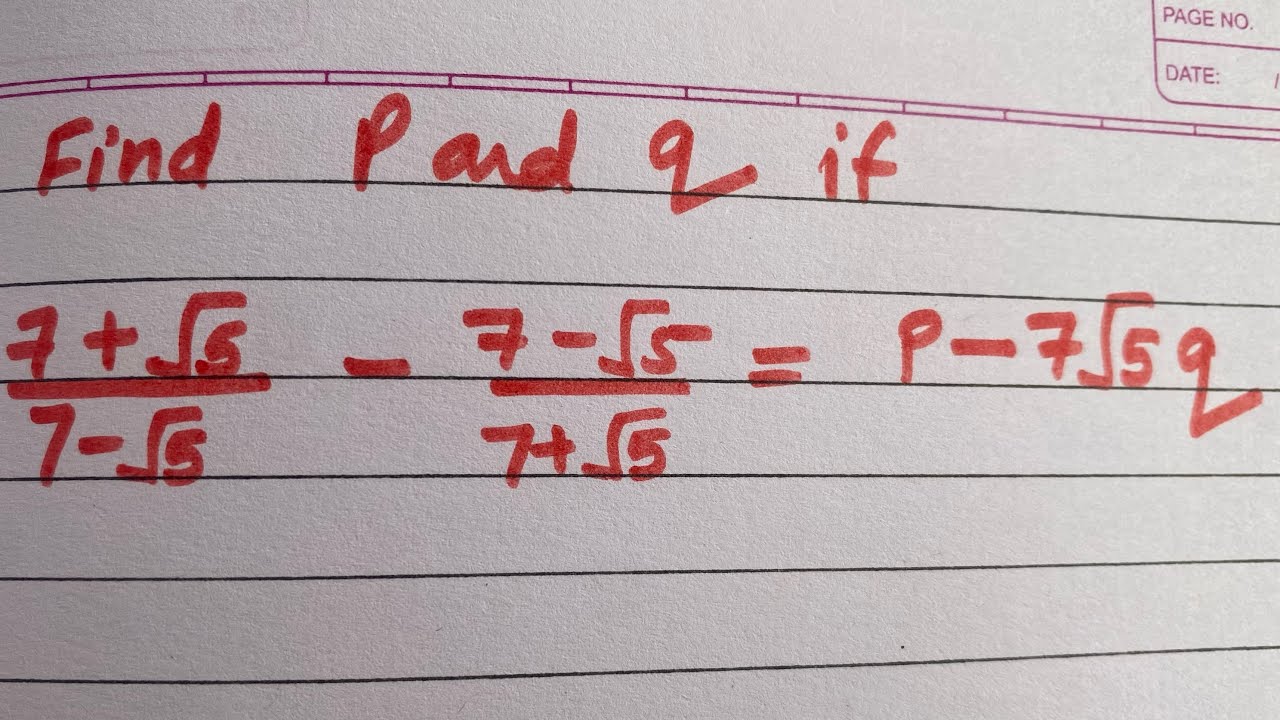 PAGE NO.
DATE: /
Find P and q if
7+√5/7-√5 - 7-√5/7+√5 = P-7√5q